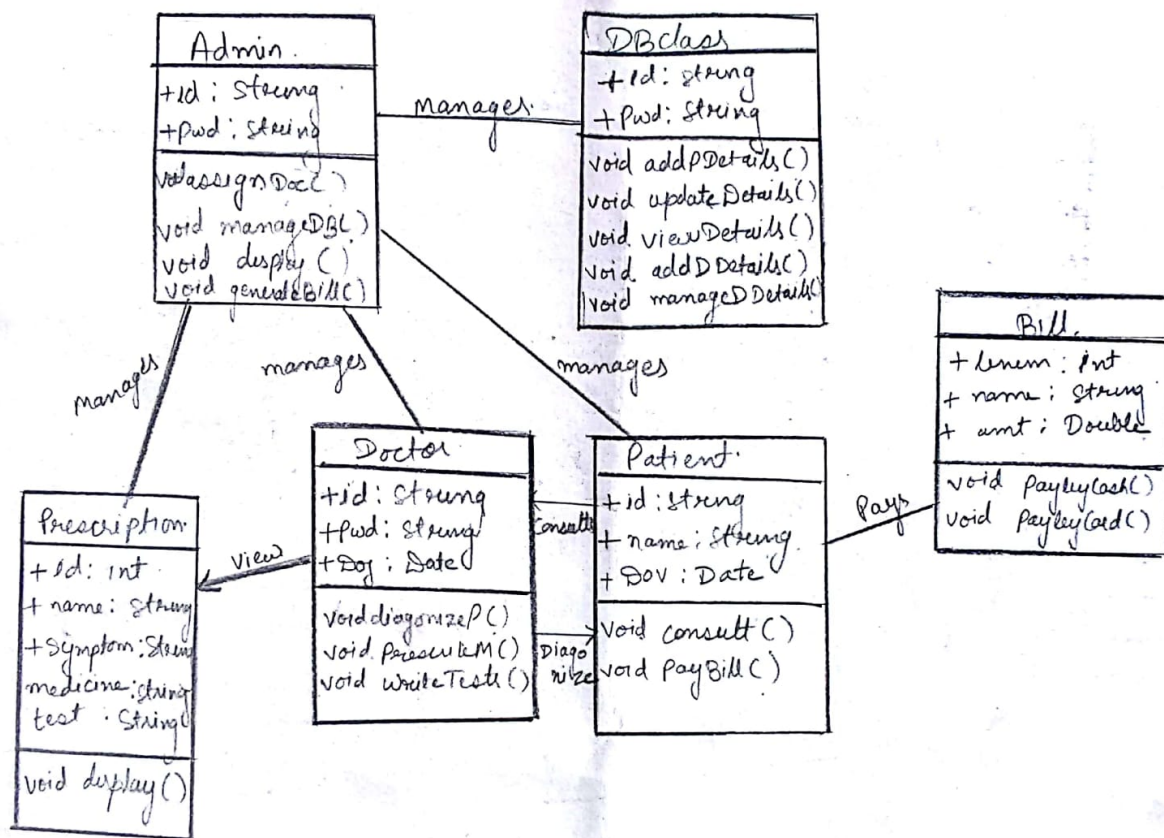 Admin.
+id: String
+pwd: String
void assignDoc()
void manageDB()
void display()
void generateBill()
manages
DBclass
+id: String
+Pwd: String
void addPDetails()
void updateDetails()
void viewDetails()
void addDDetails()
void manageDDetails()
manages
manages
manages
Bill.
+ name: String
+ amt: Double
void PaybyCash()
void PaybyCard()
Doctor
+id: String
+Pwd: String
+Doj: Date
void diagonizeP()
void
void writeTests()
Consults
Diago
nize
Patient.
+ id: String
+ name: String
+ DOV: Date
void consult()
void PayBill()
Pays
view
Prescription
+ id: int
+ name: String
+Symptom: Strin
medicine: String
test : String
void display()